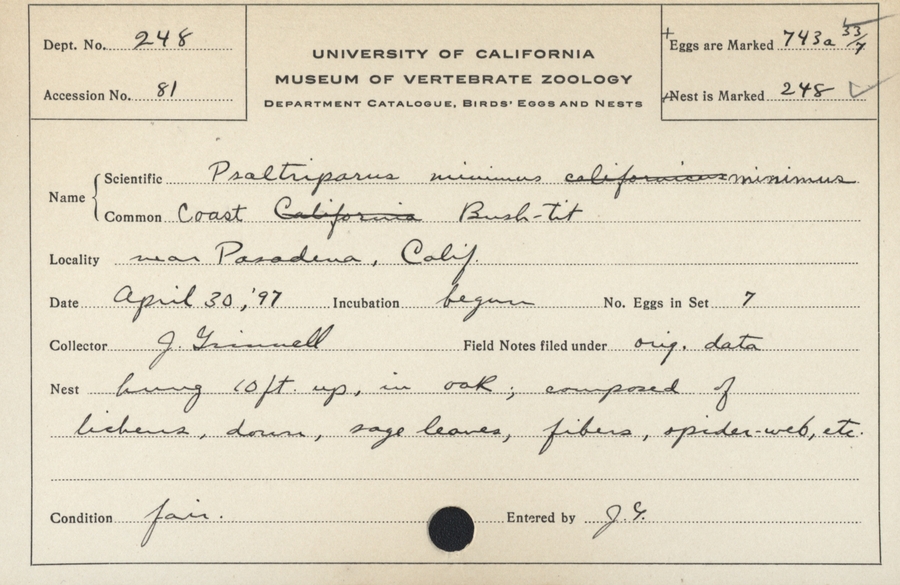 Dept. No. 248
Accession No. 81
UNIVERSITY OF CALIFORNIA
MUSEUM OF VERTEBRATE ZOOLOGY
DEPARTMENT CATALOGUE, BIRDS' EGGS AND NESTS
Eggs are Marked 743a 33/7
Nest is Marked 248
Name
Scientific Psaltriparus minimus californicus minimus
Common Coast California Bush-tit
Locality near Pasadena, Calif.
Date April 30, '97 Incubation begun No. Eggs in Set 7
Collector J. Grinnell Field Notes filed under orig. data
Nest hung 10 ft. up, in oak; composed of
lichens, down, sage leaves, fibers, spider-web, etc.
Condition fair. Entered by J.G.